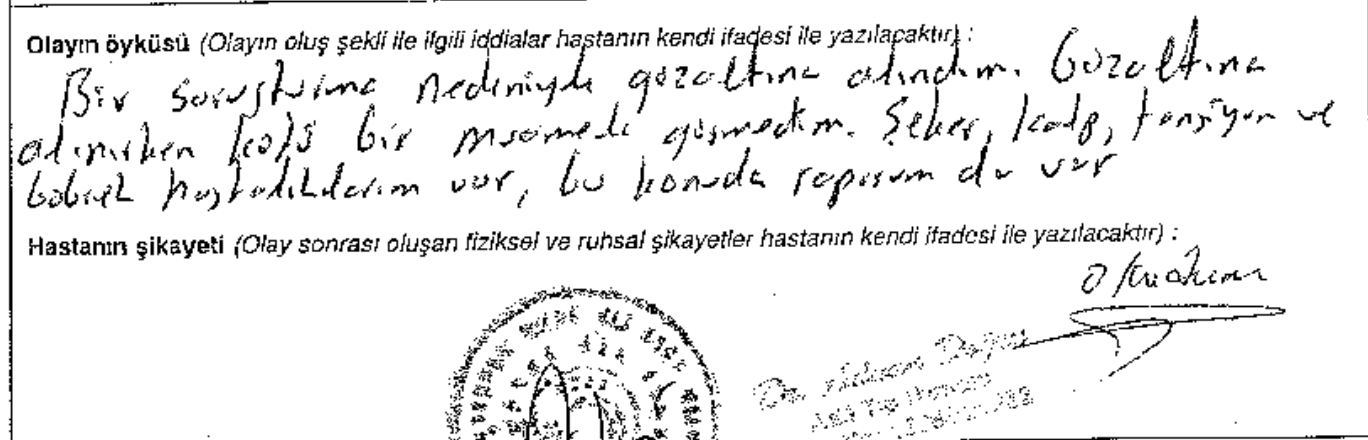 Olayın öyküsü (Olayın oluş şekli ile ilgili iddialar hastanın kendi ifadesi ile yazılacaktır) :
Bir soruşturma nedeniyle gözaltına alındım. Gözaltına
alınırken kötü bir muamele görmedim. Şeker, kalp, tansiyon ve
böbrek hastalıklarım var, bu konuda raporum da var
Hastanın şikayeti (Olay sonrası oluşan fiziksel ve ruhsal şikayetler hastanın kendi ifadesi ile yazılacaktır) :
Dr.